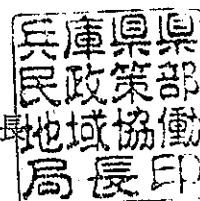 兵庫県県
民政策部
長地域協働
局長印